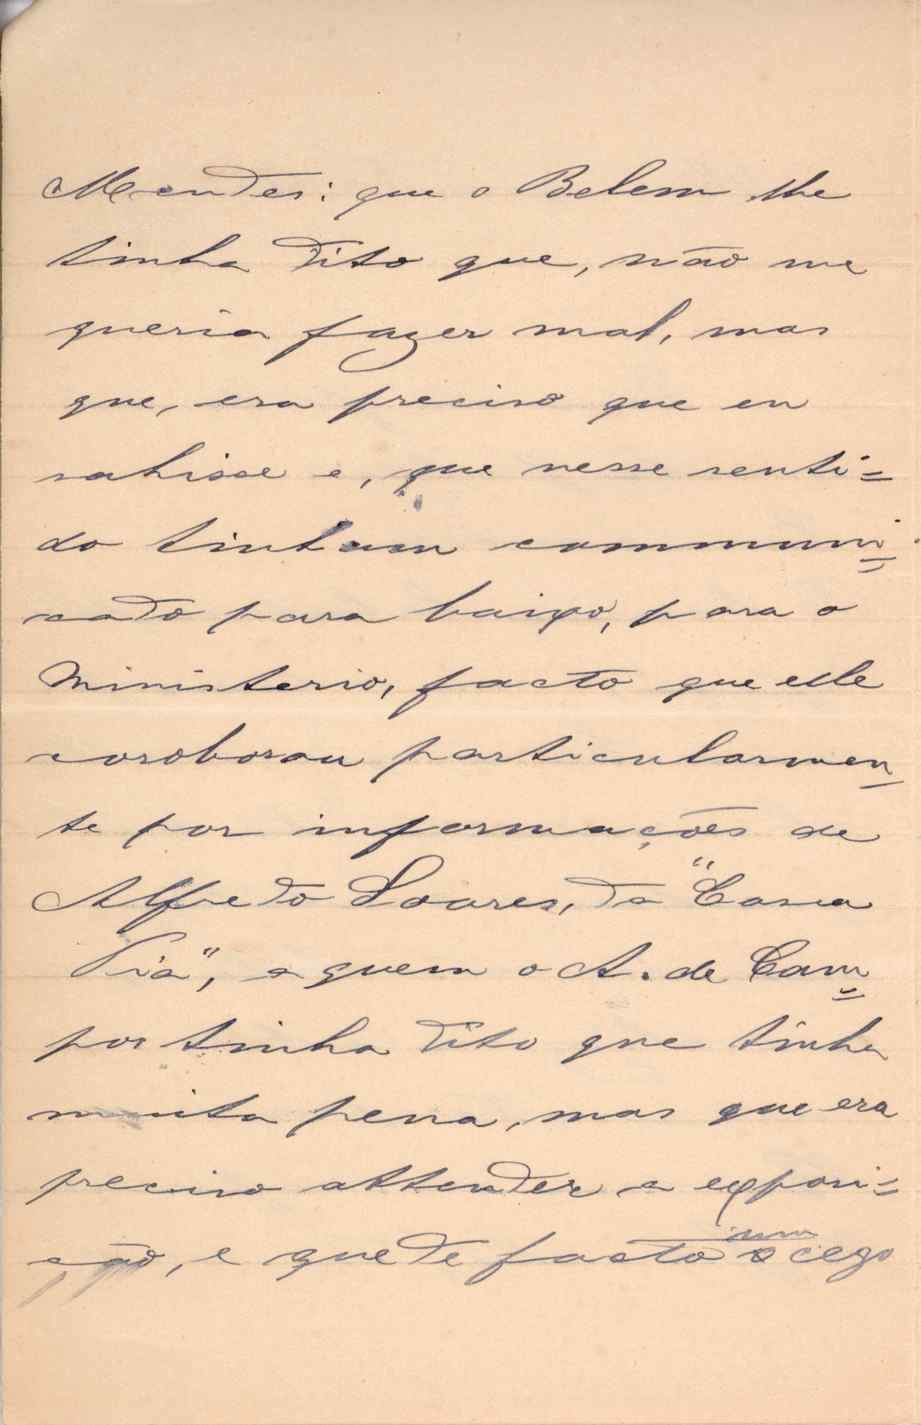 Mendes: que o Belem lhe
tinha dito que, não me
queria fazer mal, mas
que, era preciso que eu
sahisse e, que nesse senti=
do tinham communi=
cado para baixo, para o
Ministerio, facto que elle
coroborou particularmen-
te por informações de
Alfredo Soares, da "Casa
Pia", a quem o A. de Cam=
pos tinha dito que tinha
muita pena, mas que era
preciso attender a exposi=
ção, e que de facto um cego